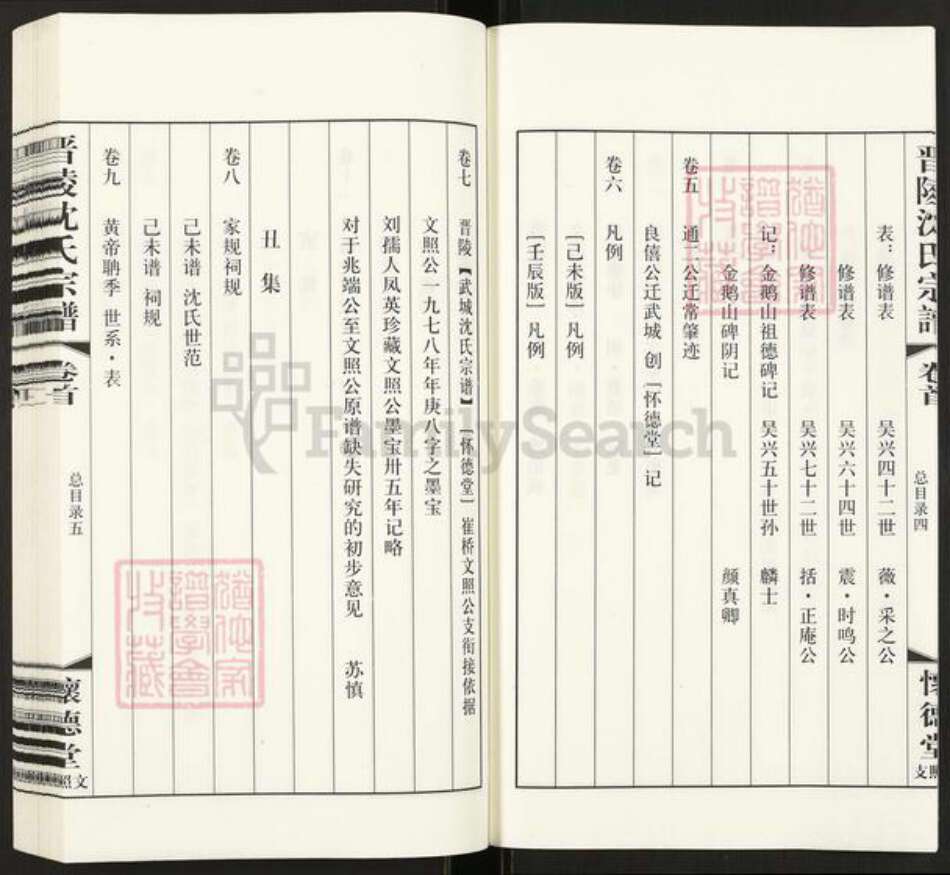 晋陵沈氏宗谱 卷首 总目录四 怀德堂 文照支
表：修谱表 吴兴四十二世 薇·采之公
修谱表 吴兴六十四世 震·时鸣公
修谱表 吴兴七十二世 括·正庵公
记：金鹅山祖德碑记 吴兴五十世孙 麟士
金鹅山碑阴记 颜真卿
卷五 通二公迁常肇迹
良僖公迁武城 创「怀德堂」记
卷六 凡例
［己未版］凡例
［壬辰版］凡例
卷七 晋陵【武城沈氏宗谱】［怀德堂］崔桥文照公支衔接依据
文照公一九七八年年庚八字之墨宝
刘孺人凤英珍藏文照公墨宝卅五年记略
对于兆端公至文照公原谱缺失研究的初步意见 苏慎
丑集
卷八 家规祠规
己未谱 沈氏世范
己未谱 祠规
卷九 黄帝聃季 世系·表
晋陵沈氏宗谱 卷首 总目录五 懷德堂 文照
FamilySearch